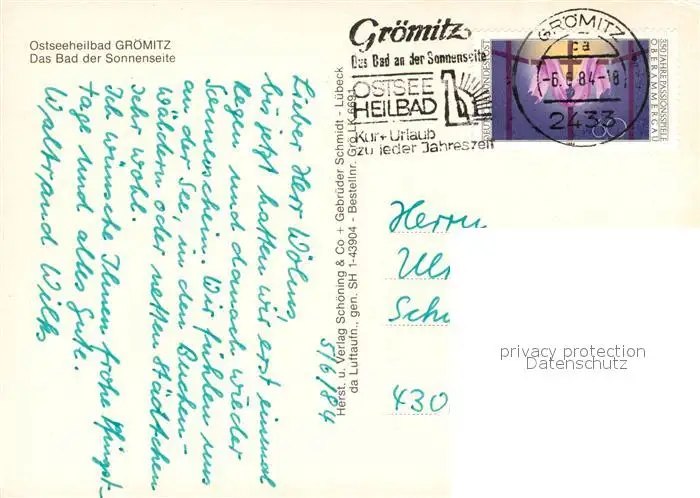 Ostseeheilbad GRÖMITZ
Das Bad der Sonnenseite
Grömitz
Das Bad an der Sonnenseite
OSTSEE
HEILBAD
Kur+Urlaub
zu jeder Jahreszeit
GRÖMITZ
-6.6.84-18
2433
DEUTSCHE BUNDESPOST
80
550 JAHRE PASSIONSSPIELE
OBERAMMERGAU
5/6/84
Lieber Herr Wölms,
bis jetzt hatten wir erst einmal
Regen und danach wieder
Sonnenschein. Wir fühlen uns
an der See, in den Buchen-
wäldern oder netten Städtchen
sehr wohl.
Ich wünsche Ihnen frohe Pfingst-
tage und alles Gute.
Waltraud Wilks
Herst. u. Verlag Schöning & Co + Gebrüder Schmidt - Lübeck
da Luftaufn., gen. SH 1-43904 - Bestellnr. Grö LK 6691
Herrn
Ul
Sch
430
privacy protection
Datenschutz